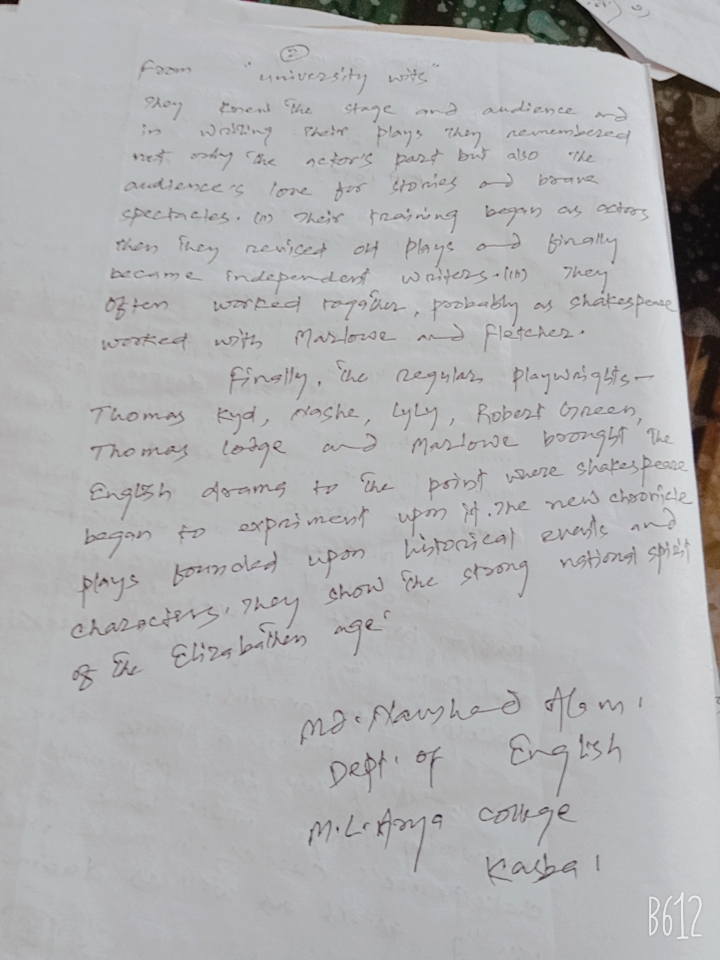 2
From "university wits"
They knew the stage and audience and
in writing their plays they remembered
not only the actor's part but also the
audience's love for stories and brave
spectacles. (ii) Their training began as actors
then they revised old plays and finally
became independent writers. (iii) They
often worked together, probably as Shakespeare
worked with Marlowe and Fletcher.
Finally, the regular playwrights—
Thomas Kyd, Nashe, Lyly, Robert Green,
Thomas Lodge and Marlowe brought the
English drama to the point where Shakespeare
began to expriment upon it. The new chronicle
plays bounded upon historical events and
characters. They show the strong national spirit
of the Elizabathen age.
Md. Naushad Alam.
Dept. of English
M.L. Arya College
Kasba
B612